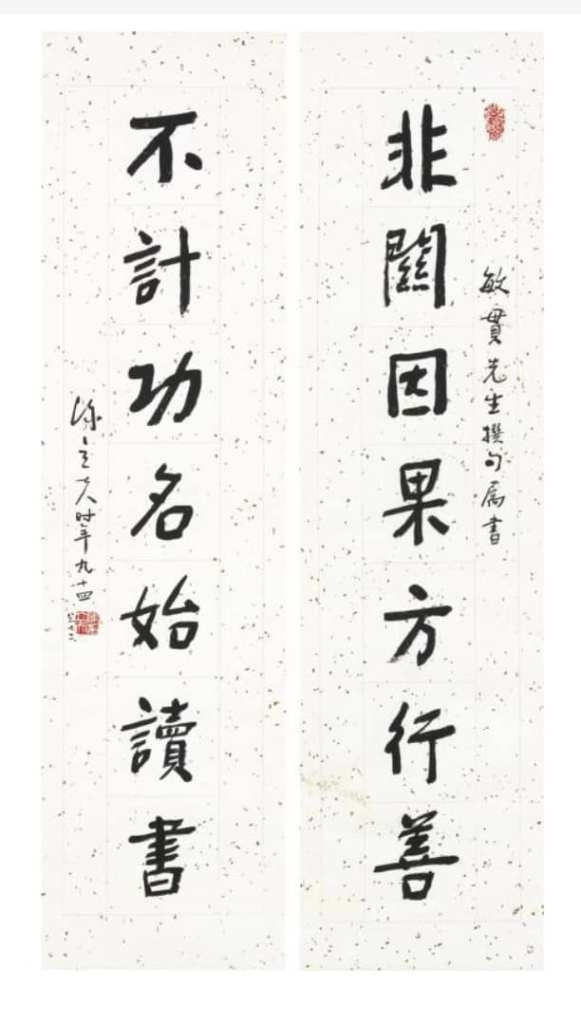 敏貫先生撰句属書
非關因果方行善
不計功名始讀書
陈立夫时年九十四